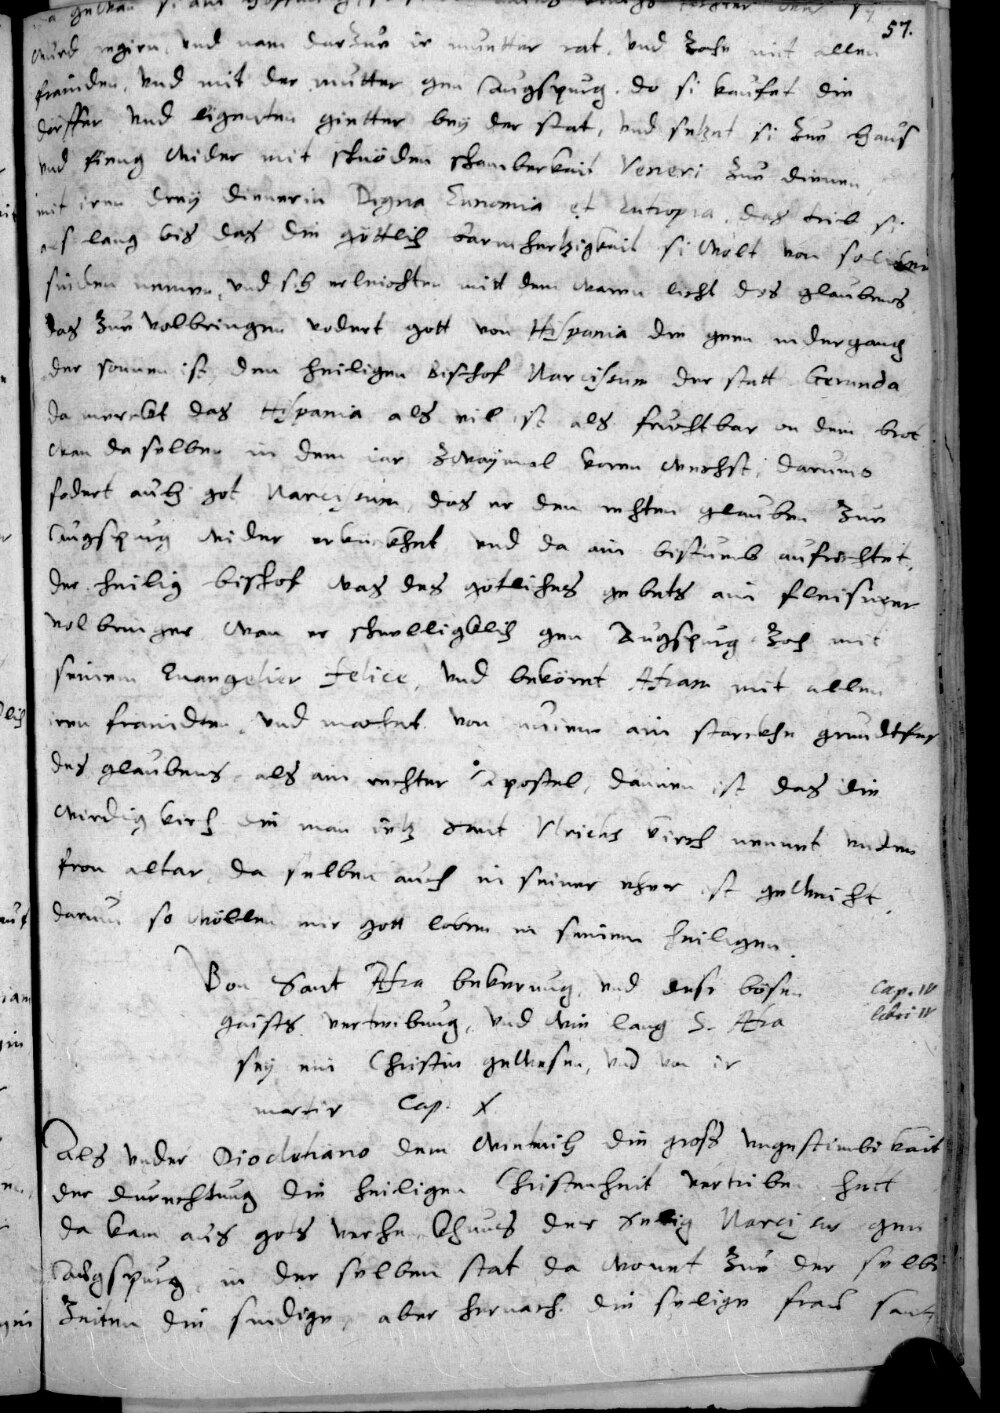 57.
wurd regirn, und nam darzue ir muetter rat, und zoche mit allen
frainden, und mit der mutter gen Augspurg. do si kaufet die
dörffer und ligenten güetter bey der stat, und setzet si zue haus
und fieng wider mit schnöden schamberkait Veneri zue dienen,
mit iren drey dienerin Digna Eunomia et Eutropia, das trib si
als lang bis das die göttlich barmhertzigkait si wolt von solichen
sünden nemen, und sich erleichten mit dem waren licht des glaubens.
das zue volbringen vodert gott von Hispania die geen nidergang
der sonnen ist, den heiligen bischof Narcissum der statt Gerunda
da merckt das Hispania als vil ist als fruchtbar on dem brot
wan da selben in dem iar zwaymal koren wechst, darumb
fodert auch got Narcissum, das er den rechten glauben zue
Augspurg wider erkückhet und da ain bistumb aufrichtet.
der heilig bischof was des gotliches gebots ain fleisiger
volbringer, wan er schnelligklich gen Augspurg zoch mit
seinem Evangelier Felice, und bekört Afram mit allen
iren frainden, und machet von neuem ain starckhe grundtfest
des glaubens, als ain rechter Apostel, dannen ist das die
wirdig kirch die man ietz sant Ulrichs kirch nennet under
fron altar, da selben auch in seiner eher ist geweicht.
darum so wöllen wir gott loben in seinen heiligen.
Von Sant Afra bekerung, und des bösen
gaists vertreibung, und wie lang S. Afra
sey ein Christin gewesen, und von ir
martir Cap. X
Cap. IV
libri IV
Als under Diocletiano dem wietrich die gross ungestimbikait
der durechtung die heiligen Christenheit vertriben hett
da kam aus gots verhenckhnus der selig Narcissus gen
Augspurg, in der selben stat da wonet zue der selben
zeiten die sündige, aber hernach die selige frau sant